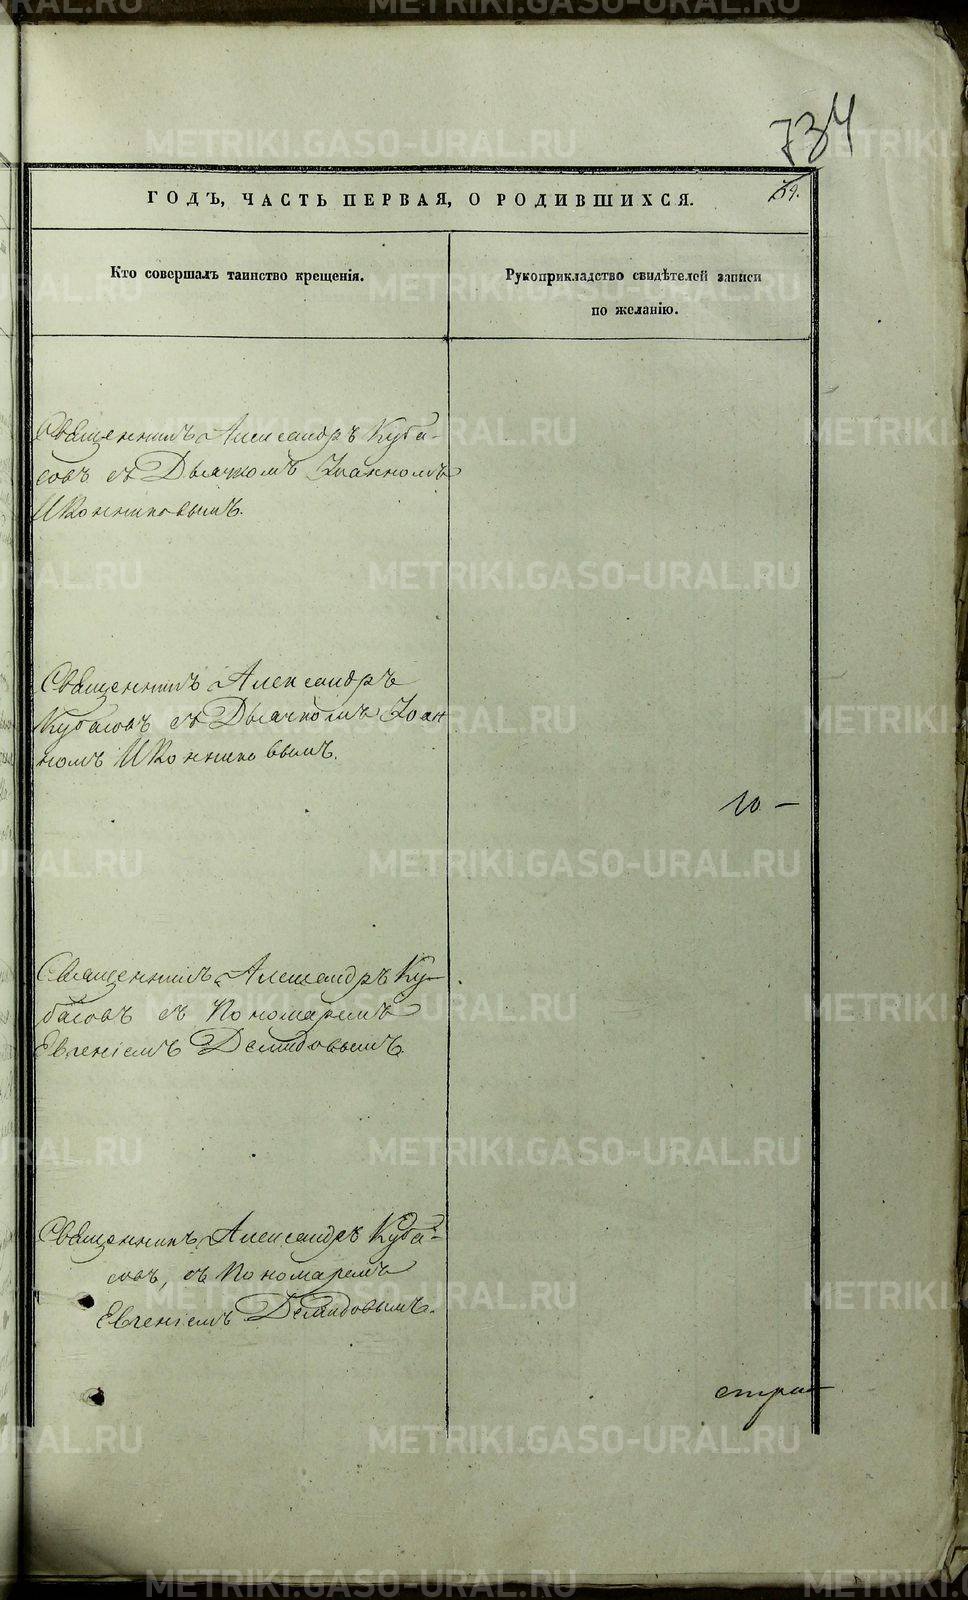 734
ГОДЪ, ЧАСТЬ ПЕРВАЯ, О РОДИВШИХСЯ.
Кто совершалъ таинство крещенія.
Рукоприкладство свидѣтелей записи
по желанію.
Священникъ Александръ Куба-
совъ съ Дьячкомъ Іоанномъ
Иконниковымъ.
Священникъ Александръ
Кубасовъ съ Дьячкомъ Іоан
номъ Иконниковымъ.
10 –
Священникъ Александръ Ку-
басовъ съ Пономаремъ
Евгеніемъ Демидовымъ.
Священникъ Александръ Куба-
совъ, съ Пономаремъ
Евгеніемъ Демидовымъ.
METRIKI.GASO-URAL.RU